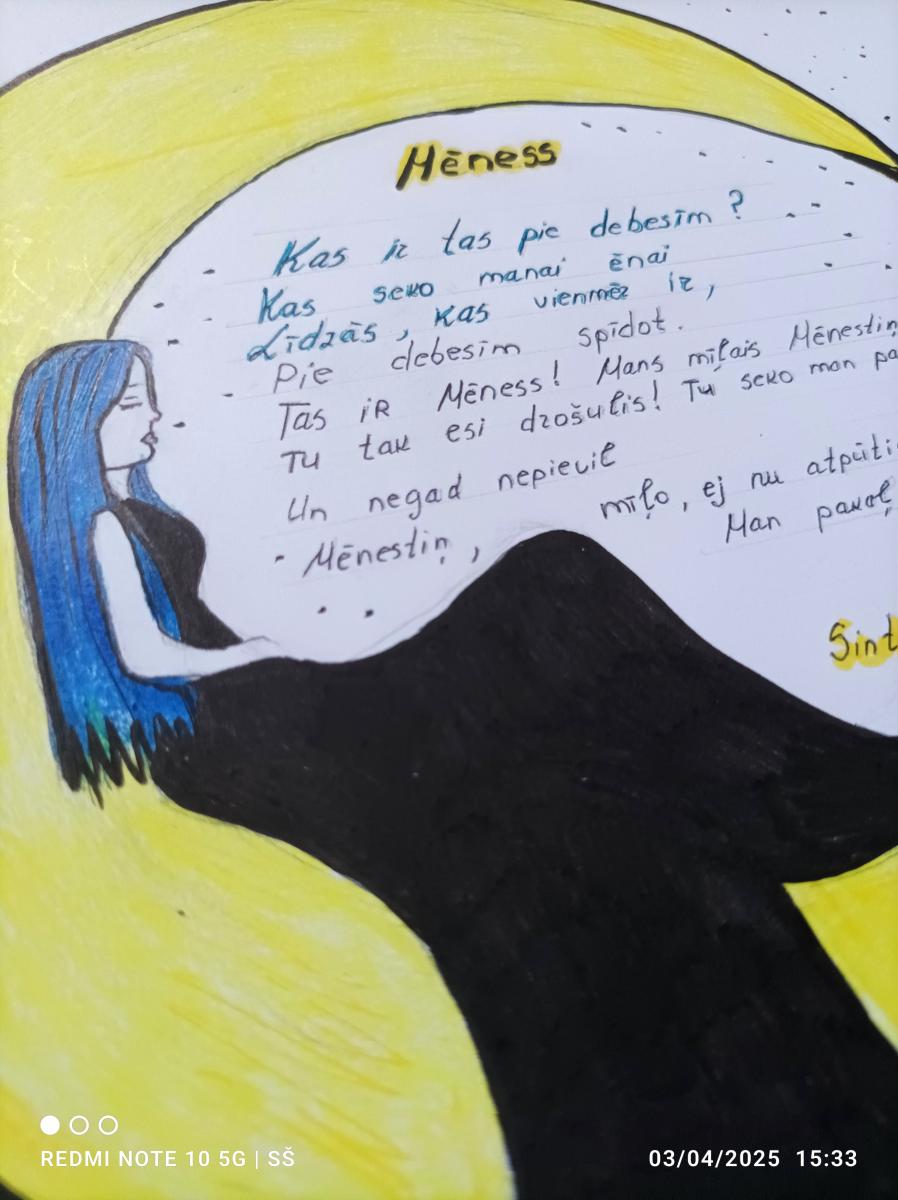 Mēness
Kas ir tas pie debesīm?
Kas seko manai ēnai
Līdzās, kas vienmēr ir,
Pie debesīm spīdot.
Tas iR Mēness! Mans mīļais Mēnestiņ
Tu tak esi drošulis! Tu seko man pa
Un negad nepieviļ
- Mēnestiņ, mīļo, ej nu atpūti
Man pakaļ
Sint
REDMI NOTE 10 5G | SŠ
03/04/2025 15:33